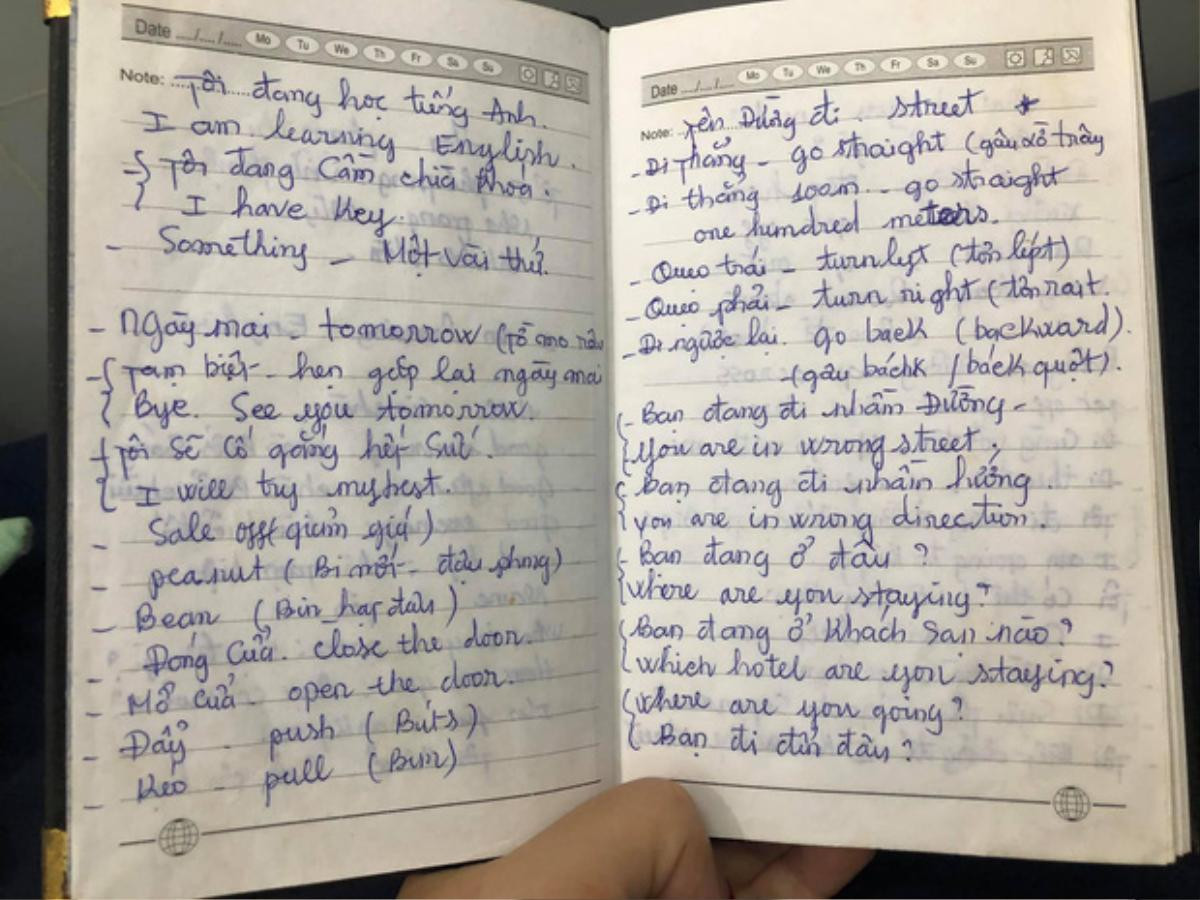 Date ..../..../..... Mo Tu We Th Fr Sa Su
Note: Tôi đang học tiếng Anh.
I am learning English.
- Tôi đang Cầm chìa khóa.
I have key.
- Somethinh - Một vài thứ.
- Ngày mai - tomorrow (Tó mo râu
- Tạm biệt - hẹn gặp lại ngày mai
Bye. See you tomorrow.
+ Tôi Sẽ Cố gắng hết Sức.
I will try my best.
- Sale off giảm giá)
- peanut (Bi nớt - đậu phọng)
- Bean (Bin_hạt đậu)
- Đóng Cửa. close the door.
- Mở Cửa - open the door.
- Đẩy - push (Bứts)
- Kéo - pull (Bun)
Date ..../..../..... Mo Tu We Th Fr Sa Su
Note: Tên Đường đi street *
- Đi Thẳng - go straight (gâu xờ trây
- Đi thẳng 100m - go straight
one hundred meters.
- Quẹo trái - turn left (tơn lépt)
- Quẹo phải - turn right (tơn rait.
- Đi ngược lại. go back (backward).
-(gâu báchk / báck quợt).
- Bạn đang đi nhầm Đường -
You are in wrong street,
Bạn đang đi nhầm hướng.
you are in wrong direction.
- Bạn đang ở đâu ?
where are you staying?
Bạn đang ở Khách Sạn nào?
which hotel are you staying?
where are you going?
Bạn đi đến đâu ?